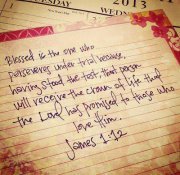 2013
WEDNESDAY
Blessed is the one who
perseveres under trial because,
having stood the test, that person
will receive the crown of life that
the Lord has promised to those who
love Him.
James 1:12